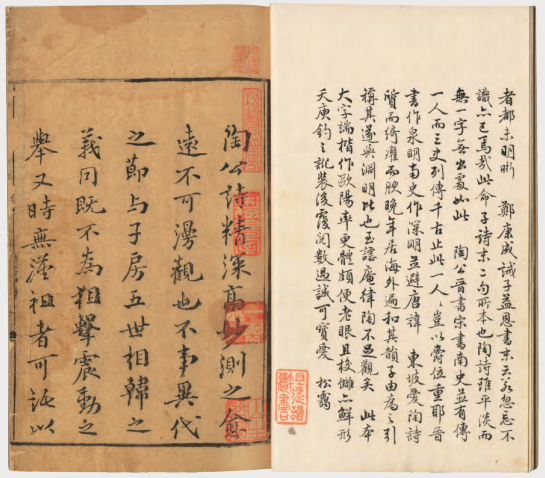 者都未明晰 鄭康成誡子益恩書末云若忽忘不
識亦已焉哉此命子詩末二句所本也陶詩雖平淡而
無一字無出處如此 陶公晉書宋書南史並有傳
一人而三史列傳千古止此一人豈以爵位重耶晉
書作泉明南史作深明並避唐諱 東坡愛陶詩
質而綺癯而腴晚年居海外遍和其韻子由為之引
稱其遂與淵明比也至謔庵律陶不足觀矣 此本
大字端楷作歐陽率更體頗便老眼且校讎亦鮮形
夭庚鈞之訛裝後覆閱數過誠可寶愛 松靄
陶公詩精深高妙測之愈
遠不可漫觀也不事異代
之節与子房五世相韓之
義同既不為狙擊震動之
舉又時無漢祖者可託以